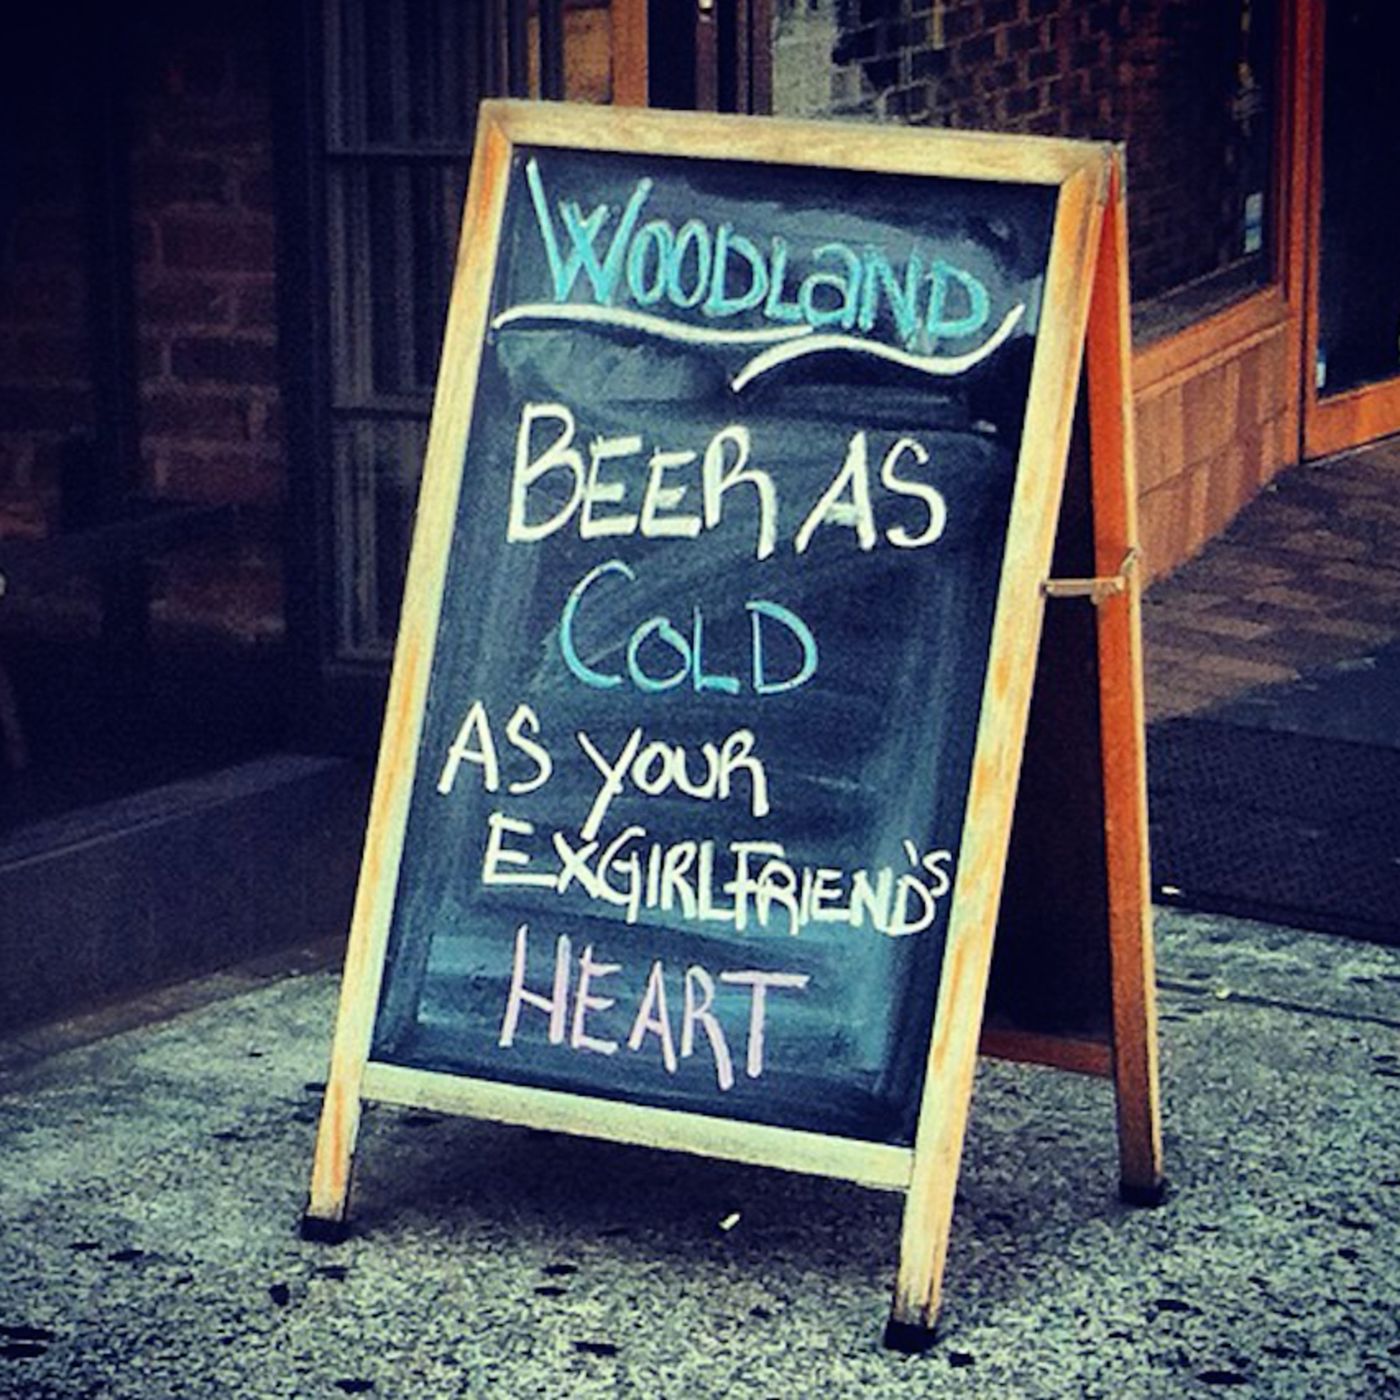 WOODLaND
BEER AS
COLD
AS YOUR
EXGIRLFRIEND'S
HEART